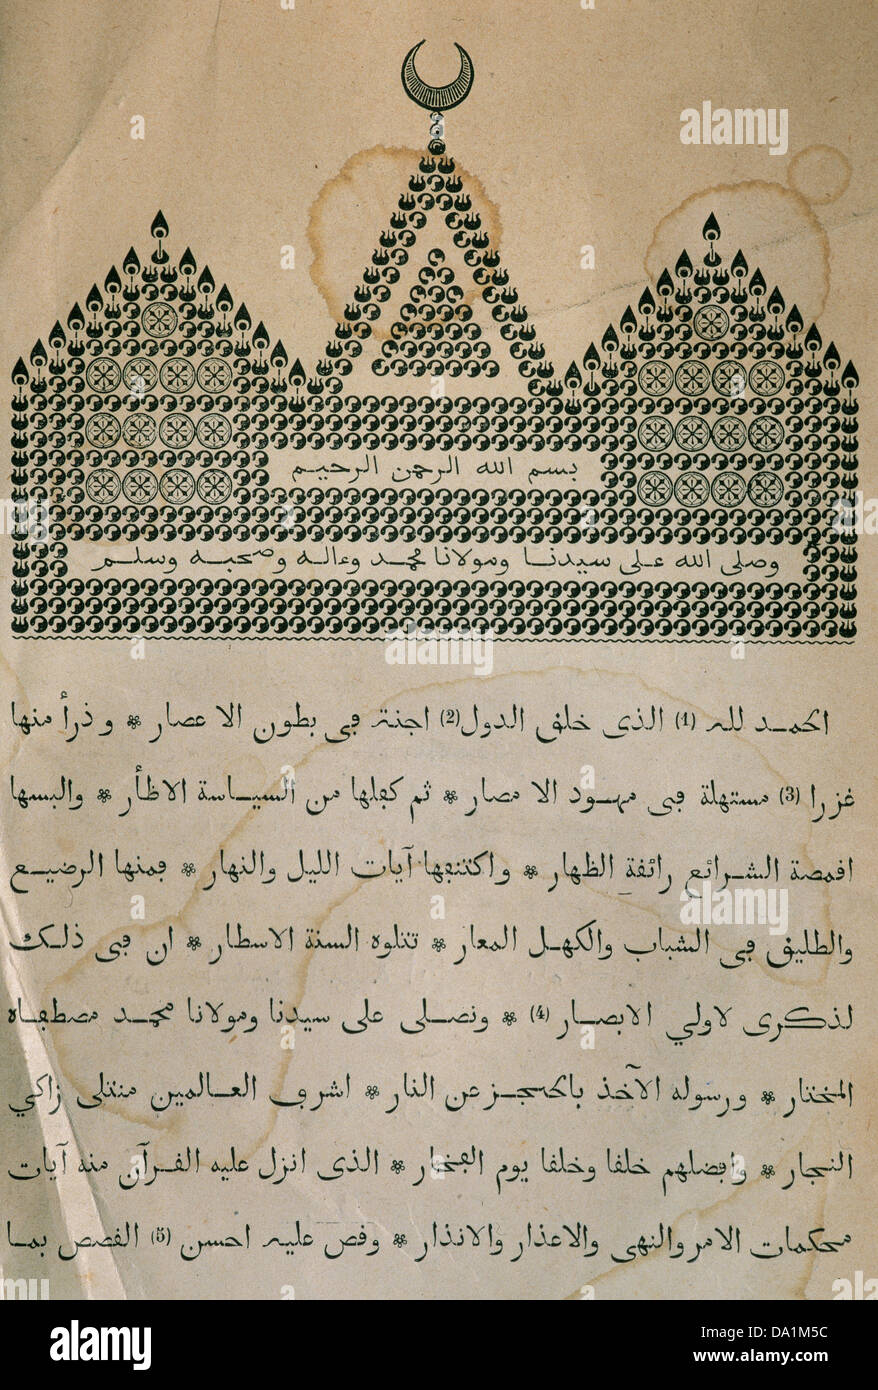 بسم الله الرحمن الرحيم
وصلى الله على سيدنا ومولانا محمد وءاله وصحبه وسلم
الحمد لله (1) الذى خلق الدول (2) اجنة فى بطون الاعصار * وذرأ منها
غزرا (3) مستهلة فى مهود الامصار * ثم كفلها من السياسة الاظأر * والبسها
اقمصة الشرائع رائقة الظهار * واكتنفها آيات الليل والنهار * فمنها الرضيع
والطليق فى الشباب والكهل المعار * تتلوه السنة الاسطار * ان فى ذلك
لذكرى لاولي الابصار (4) * ونصلى على سيدنا ومولانا محمد مصطفاه
المختار * ورسوله الآخذ بالحجز عن النار * اشرف العالمين منتلى زاكي
النجار * وافضلهم خلقا وخلقا يوم الفخار * الذى انزل عليه القرآن منه آيات
محكمات الامر والنهى والاعذار والانذار * وقص عليه احسن (5) القصص بما
alamy
a
Image ID: DA1M5C
www.alamy.com